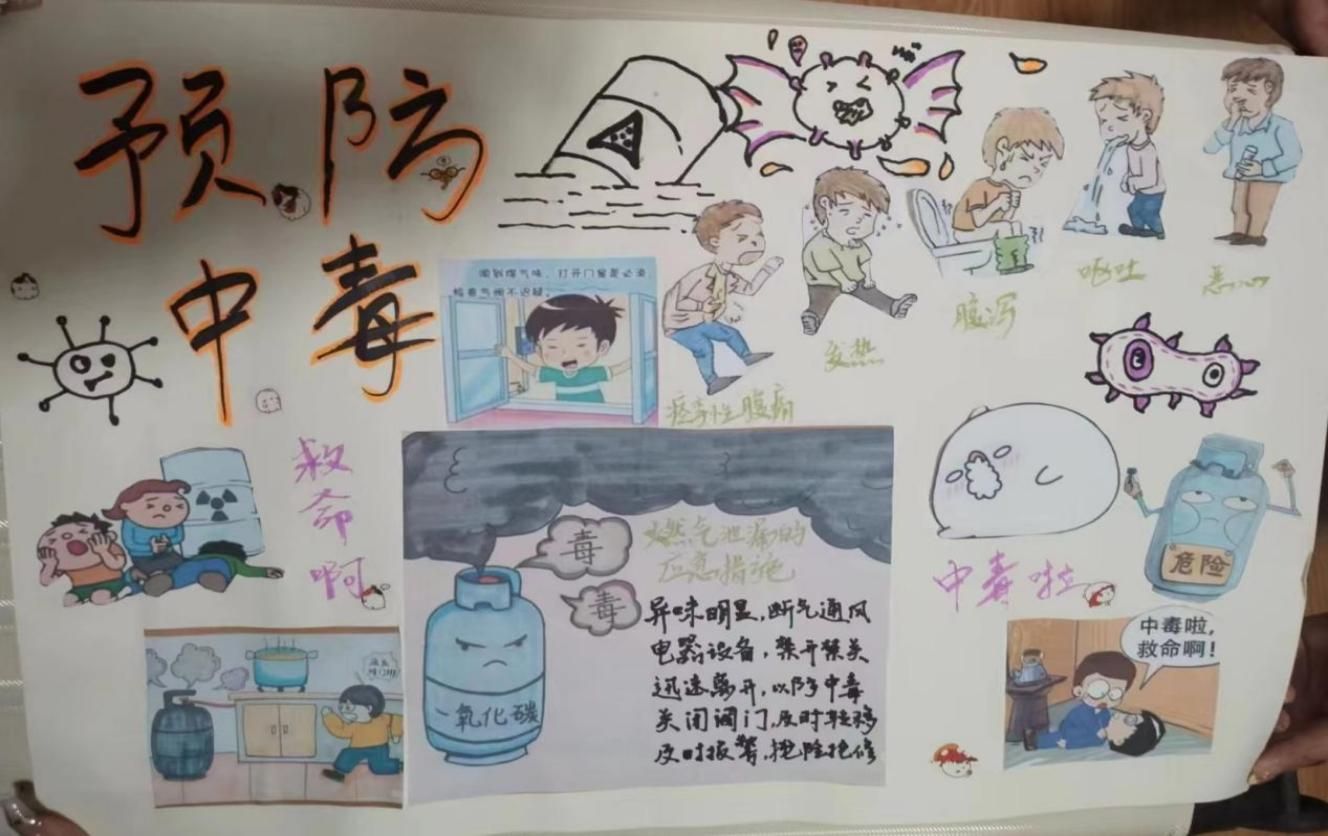 预防
中毒
闻到煤气味，打开门窗是必须，
检查气阀不迟疑。
痉挛性腹痛
发热
腹泻
呕吐
恶心
救
命
啊
毒
毒
一氧化碳
燃气泄漏的
应急措施
异味明显，断气通风
电器设备，禁开禁关
迅速离开，以防中毒
关闭阀门，及时转移
及时报警，抢险抢修
中毒啦
危险
中毒啦，
救命啊！